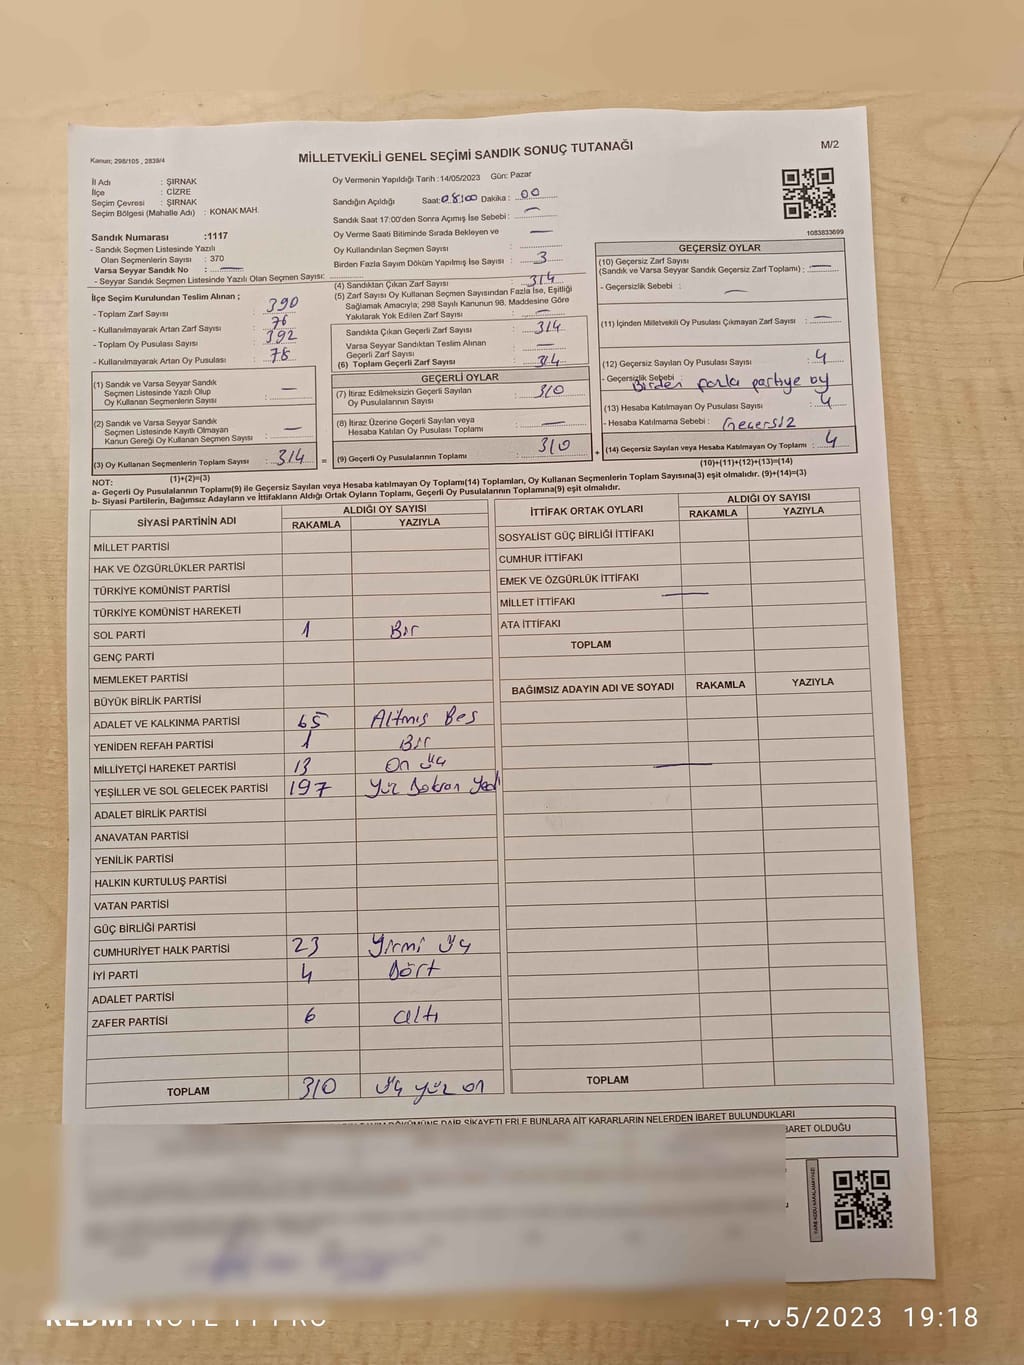 Kanun; 298/105 , 2839/4
MİLLETVEKİLİ GENEL SEÇİMİ SANDIK SONUÇ TUTANAĞI
M/2
İl Adı : ŞIRNAK
İlçe : CİZRE
Seçim Çevresi : ŞIRNAK
Seçim Bölgesi (Mahalle Adı) : KONAK MAH.
Oy Vermenin Yapıldığı Tarih : 14/05/2023 Gün: Pazar
Sandığın Açıldığı Saat: 08:00 Dakika : 00
Sandık Saat 17:00'den Sonra Açımış İse Sebebi : —
Oy Verme Saati Bitiminde Sırada Bekleyen ve —
Oy Kullandırılan Seçmen Sayısı :
Birden Fazla Sayım Döküm Yapılmış İse Sayısı : 3
1083833699
Sandık Numarası :1117
- Sandık Seçmen Listesinde Yazılı
Olan Seçmenlerin Sayısı : 370
Varsa Seyyar Sandık No : —
- Seyyar Sandık Seçmen Listesinde Yazılı Olan Seçmen Sayısı:
İlçe Seçim Kurulundan Teslim Alınan ;
- Toplam Zarf Sayısı : 390
- Kullanılmayarak Artan Zarf Sayısı : 76
- Toplam Oy Pusulası Sayısı : 392
- Kullanılmayarak Artan Oy Pusulası : 78
(1) Sandık ve Varsa Seyyar Sandık
Seçmen Listesinde Yazılı Olup
Oy Kullanan Seçmenlerin Sayısı : —
(2) Sandık ve Varsa Seyyar Sandık
Seçmen Listesinde Kayıtlı Olmayan
Kanun Gereği Oy Kullanan Seçmen Sayısı : —
(3) Oy Kullanan Seçmenlerin Toplam Sayısı : 314
(1)+(2)=(3)
(4) Sandıktan Çıkan Zarf Sayısı : 314
(5) Zarf Sayısı Oy Kullanan Seçmen Sayısından Fazla İse, Eşitliği
Sağlamak Amacıyla; 298 Sayılı Kanunun 98. Maddesine Göre
Yakılarak Yok Edilen Zarf Sayısı : —
Sandıkta Çıkan Geçerli Zarf Sayısı : 314
Varsa Seyyar Sandıktan Teslim Alınan
Geçerli Zarf Sayısı : —
(6) Toplam Geçerli Zarf Sayısı : 314
GEÇERLİ OYLAR
(7) İtiraz Edilmeksizin Geçerli Sayılan
Oy Pusulalarının Sayısı : 310
(8) İtiraz Üzerine Geçerli Sayılan veya
Hesaba Katılan Oy Pusulası Toplamı : —
= (9) Geçerli Oy Pusulalarının Toplamı : 310 +
GEÇERSİZ OYLAR
(10) Geçersiz Zarf Sayısı
(Sandık ve Varsa Seyyar Sandık Geçersiz Zarf Toplamı) : —
- Geçersizlik Sebebi : —
(11) İçinden Milletvekili Oy Pusulası Çıkmayan Zarf Sayısı : —
(12) Geçersiz Sayılan Oy Pusulası Sayısı : 4
- Geçersizlik Sebebi : Birden fazla partiye oy
(13) Hesaba Katılmayan Oy Pusulası Sayısı : 4
- Hesaba Katılmama Sebebi : Geçersiz
(14) Geçersiz Sayılan veya Hesaba Katılmayan Oy Toplamı : 4
(10)+(11)+(12)+(13)=(14)
NOT:
a- Geçerli Oy Pusulalarının Toplamı(9) ile Geçersiz Sayılan veya Hesaba katılmayan Oy Toplamı(14) Toplamları, Oy Kullanan Seçmenlerin Toplam Sayısına(3) eşit olmalıdır. (9)+(14)=(3)
b- Siyasi Partilerin, Bağımsız Adayların ve İttifakların Aldığı Ortak Oyların Toplamı, Geçerli Oy Pusulalarının Toplamına(9) eşit olmalıdır.
SİYASİ PARTİNİN ADI ALDIĞI OY SAYISI
RAKAMLA YAZIYLA
MİLLET PARTİSİ
HAK VE ÖZGÜRLÜKLER PARTİSİ
TÜRKİYE KOMÜNİST PARTİSİ
TÜRKİYE KOMÜNİST HAREKETİ
SOL PARTİ 1 Bir
GENÇ PARTİ
MEMLEKET PARTİSİ
BÜYÜK BİRLİK PARTİSİ
ADALET VE KALKINMA PARTİSİ 65 Altmış Beş
YENİDEN REFAH PARTİSİ 1 Bir
MİLLİYETÇİ HAREKET PARTİSİ 13 On üç
YEŞİLLER VE SOL GELECEK PARTİSİ 197 Yüz Doksan Yedi
ADALET BİRLİK PARTİSİ
ANAVATAN PARTİSİ
YENİLİK PARTİSİ
HALKIN KURTULUŞ PARTİSİ
VATAN PARTİSİ
GÜÇ BİRLİĞİ PARTİSİ
CUMHURİYET HALK PARTİSİ 23 Yirmi üç
İYİ PARTİ 4 Dört
ADALET PARTİSİ
ZAFER PARTİSİ 6 altı
TOPLAM 310 üç yüz on
İTTİFAK ORTAK OYLARI ALDIĞI OY SAYISI
RAKAMLA YAZIYLA
SOSYALİST GÜÇ BİRLİĞİ İTTİFAKI
CUMHUR İTTİFAKI
EMEK VE ÖZGÜRLÜK İTTİFAKI
MİLLET İTTİFAKI —
ATA İTTİFAKI
TOPLAM
BAĞIMSIZ ADAYIN ADI VE SOYADI RAKAMLA YAZIYLA
—
TOPLAM
DÖKÜMÜNE DAİR ŞİKAYETLERLE BUNLARA AİT KARARLARIN NELERDEN İBARET BULUNDUKLARI
BARET OLDUĞU
REDMI NOTE 11 PRO
14/05/2023 19:18